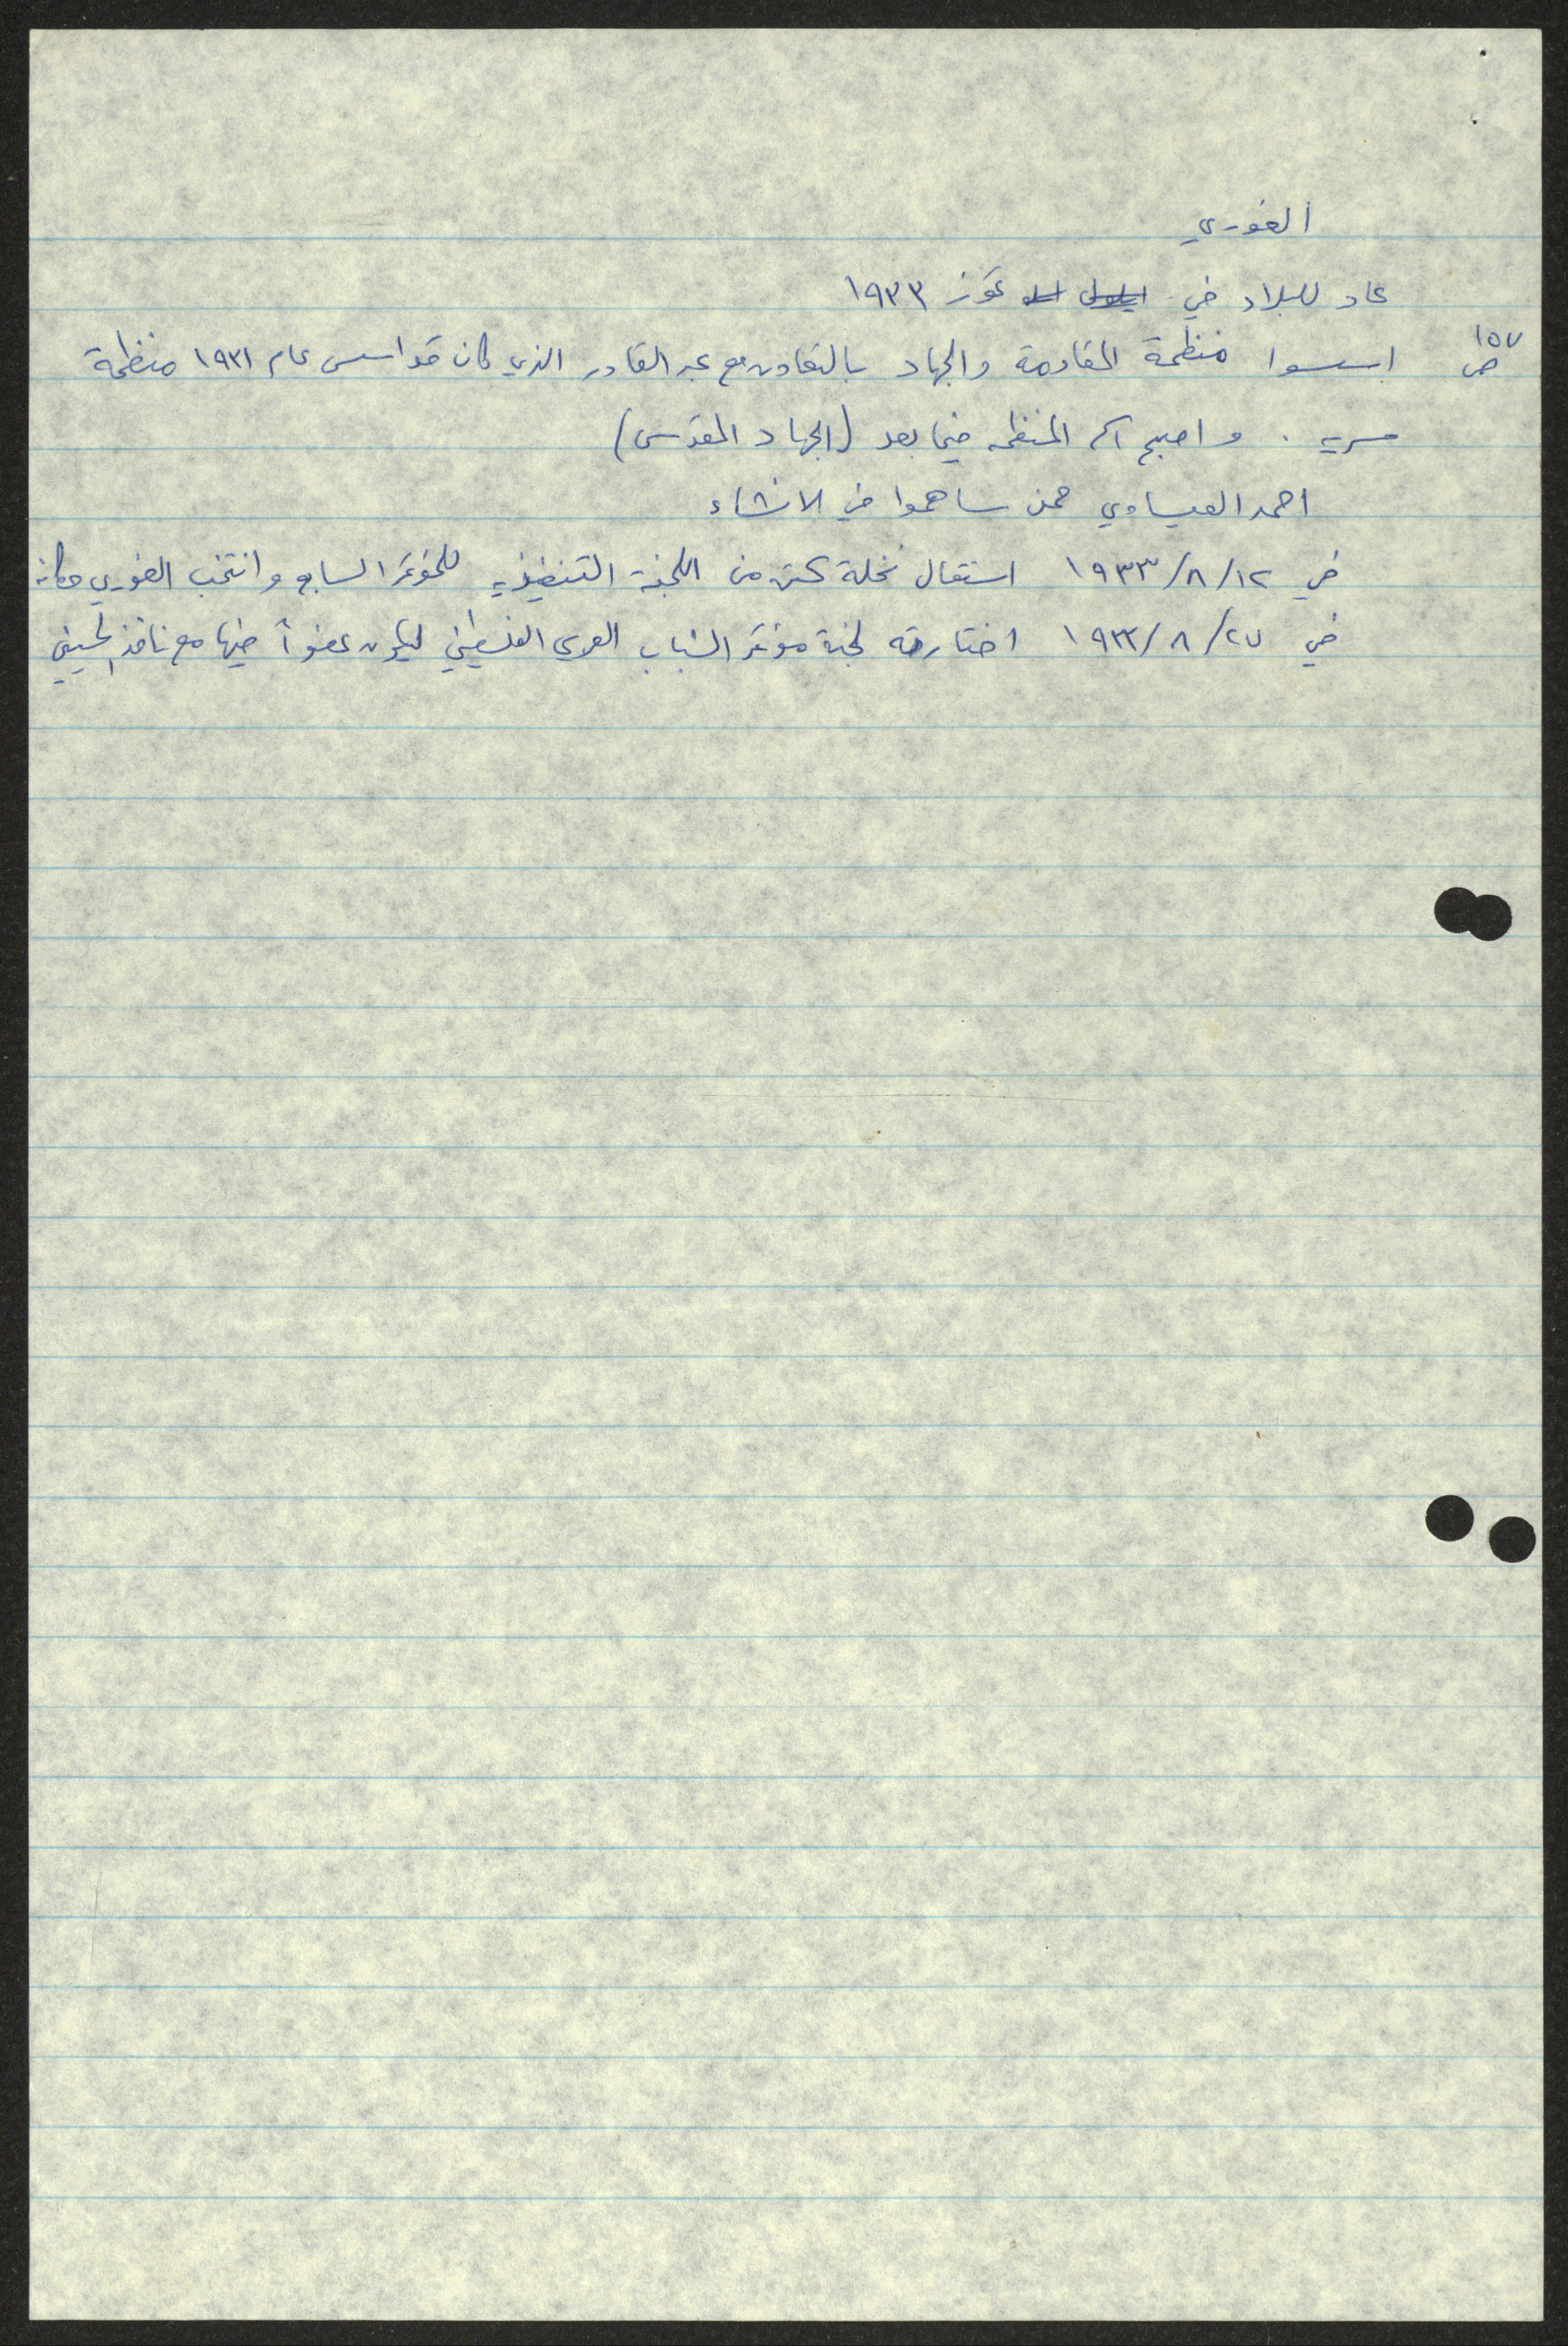 الغوري
عاد للبلاد في ايلول تموز ١٩٣٣
ص ١٥٧ اسسوا منظمة المقاومة والجهاد بالتعاون مع عبد القادر الذي كان قد اسس عام ١٩٣١ منظمة
سرية . واصبح اسم المنظمه فيما بعد (الجهاد المقدس)
احمد العيساوي ممن ساهموا في الانشاء
في ١٢/٨/١٩٣٣ استقال نخلة كتن من اللجنة التنفيذيه للمؤتمر السابع وانتخب الغوري مكانه
في ٢٧/٨/١٩٣٣ اختارته لجنة مؤتمر الشباب العربي الفلسطيني ليكون عضواً فيها مع نافذ الحسيني